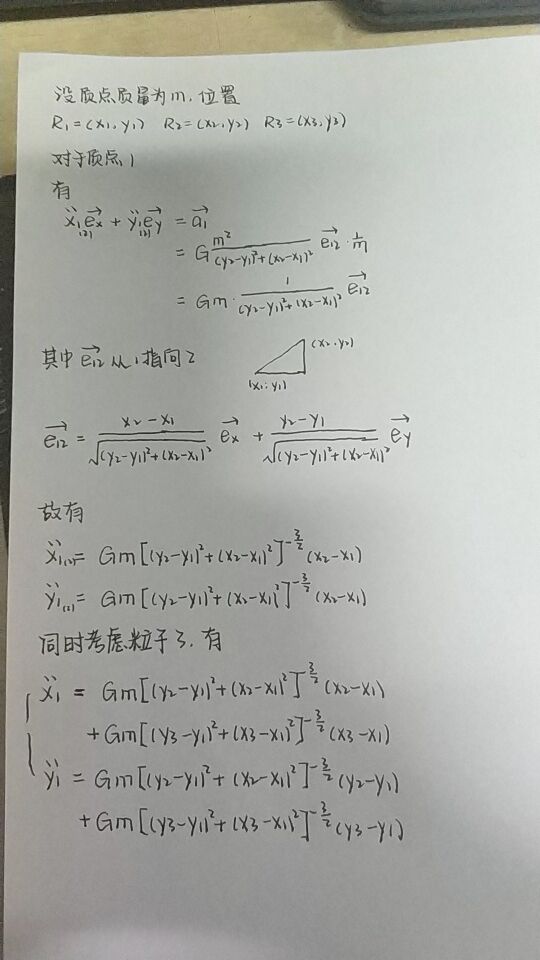 设质点质量为m,位置
R₁=(x₁,y₁) R₂=(x₂,y₂) R₃=(x₃,y₃)
对于质点1
有
ẍ₁₍₂₎e⃗x + ÿ₁₍₂₎e⃗y = a⃗₁
= G m²/((y₂-y₁)²+(x₂-x₁)²) e⃗₁₂ · 1/m
= Gm · 1/((y₂-y₁)²+(x₂-x₁)²) e⃗₁₂
其中 e⃗₁₂ 从1指向2
(x₂,y₂)
(x₁,y₁)
e⃗₁₂ = (x₂-x₁)/√((y₂-y₁)²+(x₂-x₁)²) e⃗x + (y₂-y₁)/√((y₂-y₁)²+(x₂-x₁)²) e⃗y
故有
ẍ₁₍₂₎= Gm[(y₂-y₁)²+(x₂-x₁)²]^(-3/2) (x₂-x₁)
ÿ₁₍₂₎= Gm[(y₂-y₁)²+(x₂-x₁)²]^(-3/2) (x₂-x₁)
同时考虑粒子3,有
ẍ₁ = Gm[(y₂-y₁)²+(x₂-x₁)²]^(-3/2) (x₂-x₁)
+Gm[(y₃-y₁)²+(x₃-x₁)²]^(-3/2) (x₃-x₁)
ÿ₁ = Gm[(y₂-y₁)²+(x₂-x₁)²]^(-3/2) (y₂-y₁)
+Gm[(y₃-y₁)²+(x₃-x₁)²]^(-3/2) (y₃-y₁)